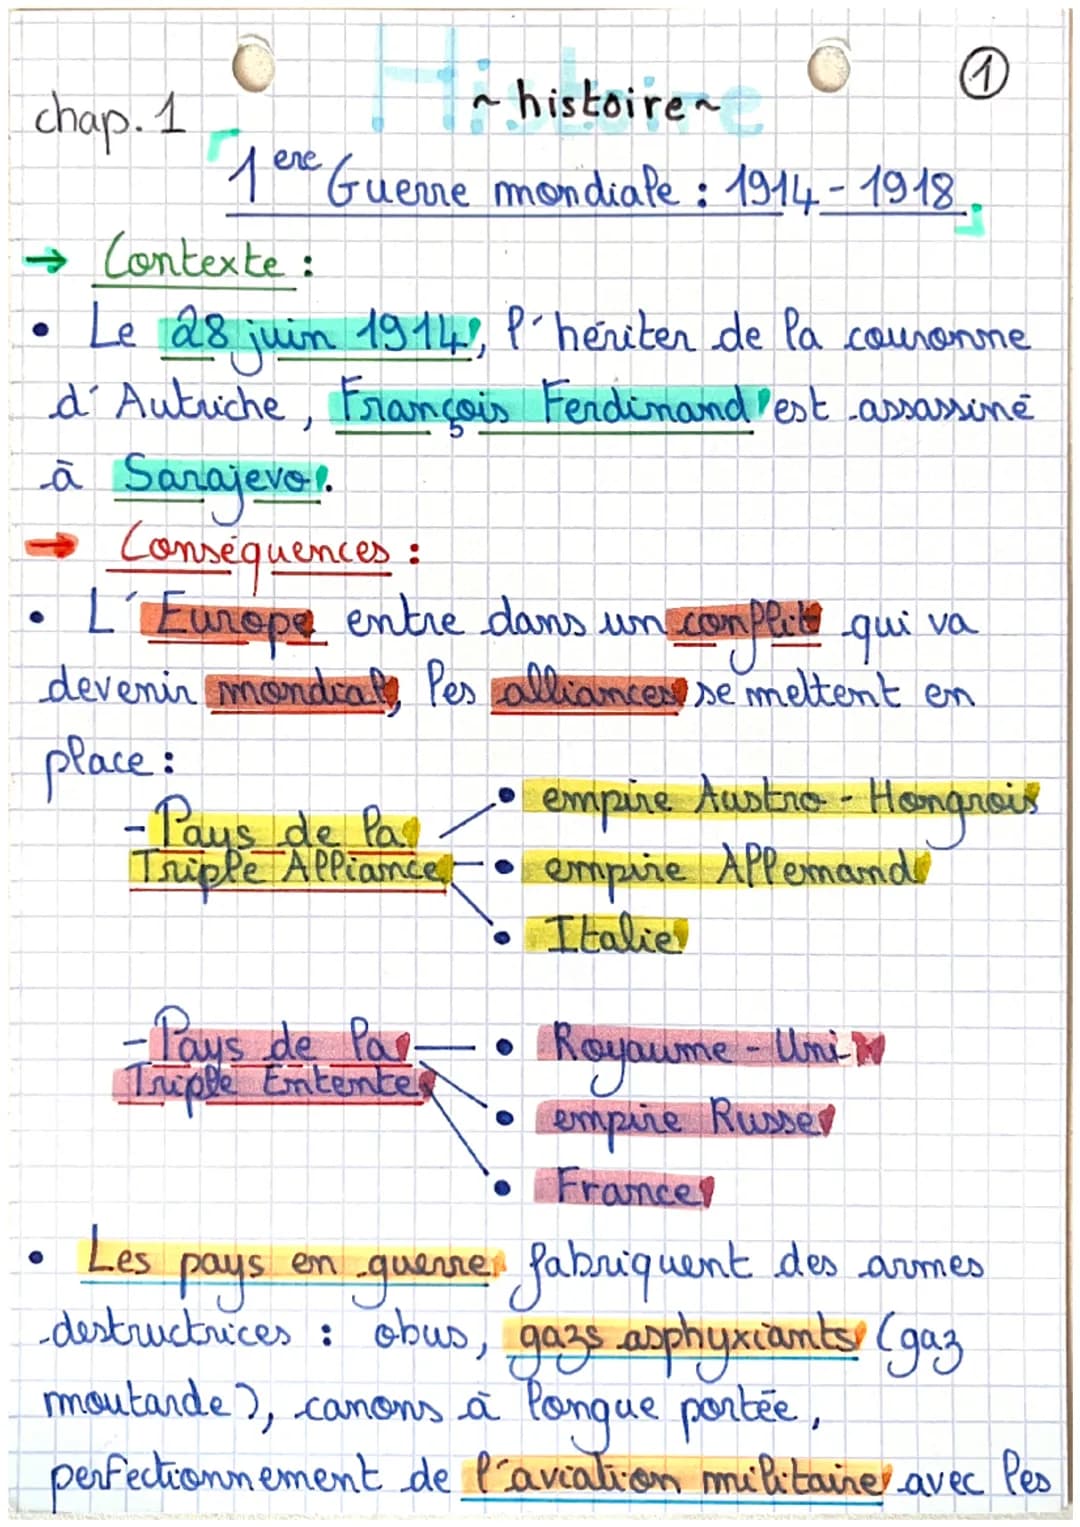 Histoire
~ histoire ~
1
chap. 1
1ere Guerre mondiale : 1914 - 1918
→ Contexte :
• Le 28 juin 1914, l'hériter de la couronne
d'Autriche, François Ferdinand est assassiné
à Sarajevo.
→ Conséquences :
• L'Europe entre dans un conflit qui va
devenir mondial, les alliances se mettent en
place :
- Pays de la Triple Alliance
• empire Austro - Hongrois
• empire Allemand
• Italie
- Pays de la Triple Entente
• Royaume - Uni
• empire Russe
• France
• Les pays en guerre fabriquent des armes
destructrices : obus, gazs asphyxiants (gaz
moutarde), canons à longue portée,
perfectionnement de l'aviation militaire avec les